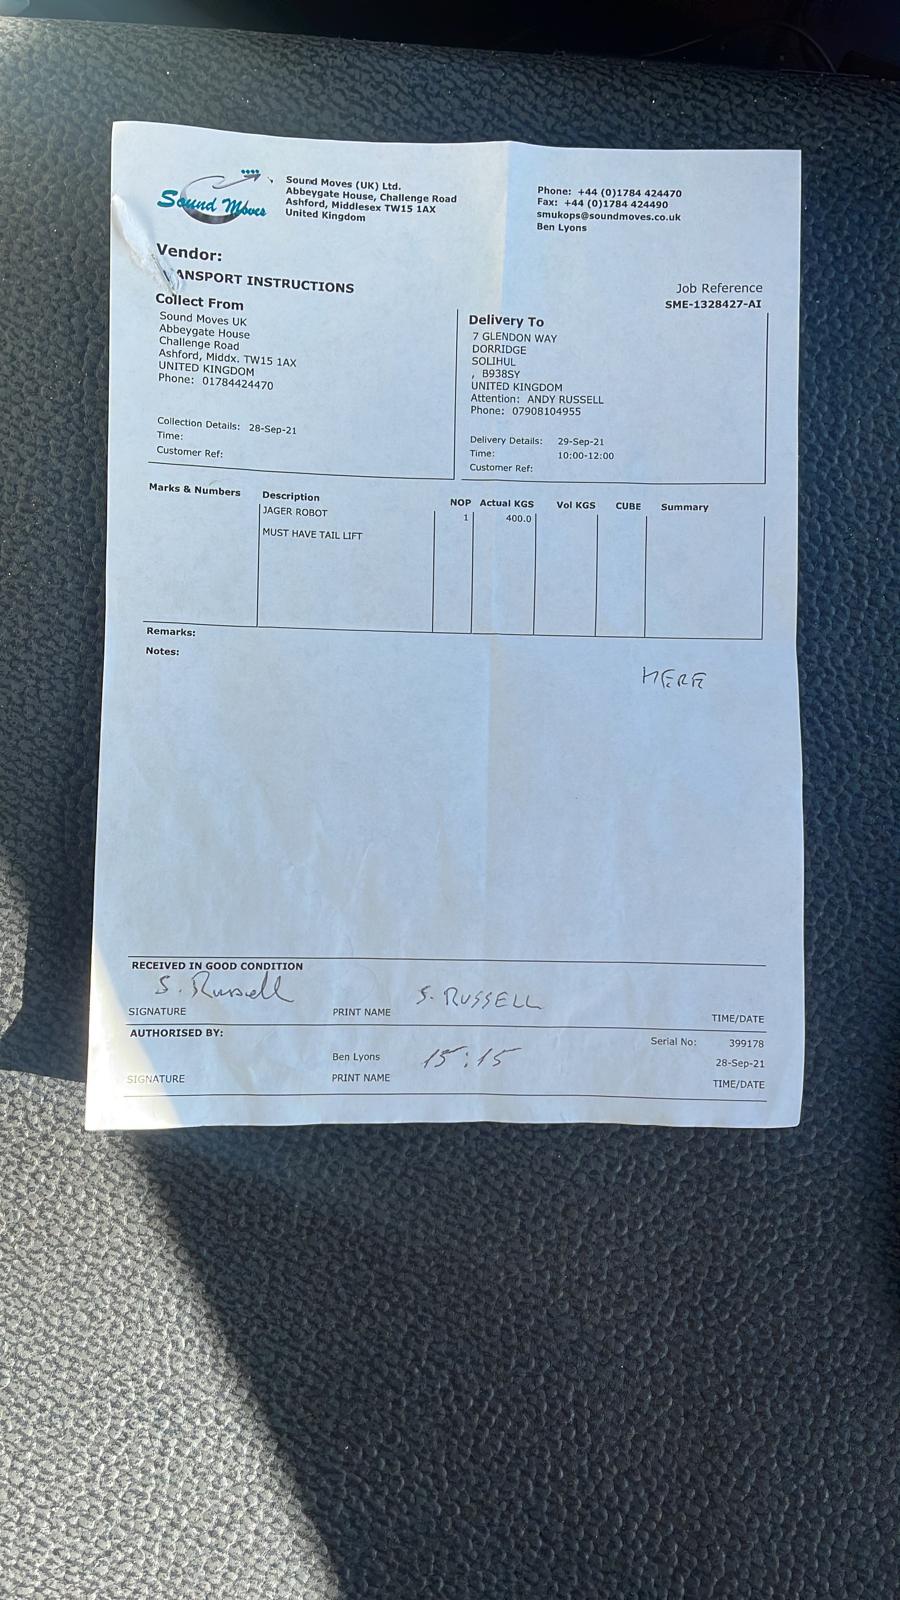 Sound Moves
Sound Moves (UK) Ltd.
Abbeygate House, Challenge Road
Ashford, Middlesex TW15 1AX
United Kingdom
Phone: +44 (0)1784 424470
Fax: +44 (0)1784 424490
smukops@soundmoves.co.uk
Ben Lyons
Vendor:
ANSPORT INSTRUCTIONS
Job Reference
SME-1328427-AI
Collect From
Sound Moves UK
Abbeygate House
Challenge Road
Ashford, Middx. TW15 1AX
UNITED KINGDOM
Phone: 01784424470
Collection Details: 28-Sep-21
Time:
Customer Ref:
Delivery To
7 GLENDON WAY
DORRIDGE
SOLIHUL
, B938SY
UNITED KINGDOM
Attention: ANDY RUSSELL
Phone: 07908104955
Delivery Details: 29-Sep-21
Time: 10:00-12:00
Customer Ref:
Marks & Numbers Description NOP Actual KGS Vol KGS CUBE Summary
JAGER ROBOT 1 400.0
MUST HAVE TAIL LIFT
Remarks:
Notes:
HERE
RECEIVED IN GOOD CONDITION
S. Russell S. RUSSELL
SIGNATURE PRINT NAME TIME/DATE
AUTHORISED BY: Serial No: 399178
Ben Lyons 15:15 28-Sep-21
SIGNATURE PRINT NAME TIME/DATE